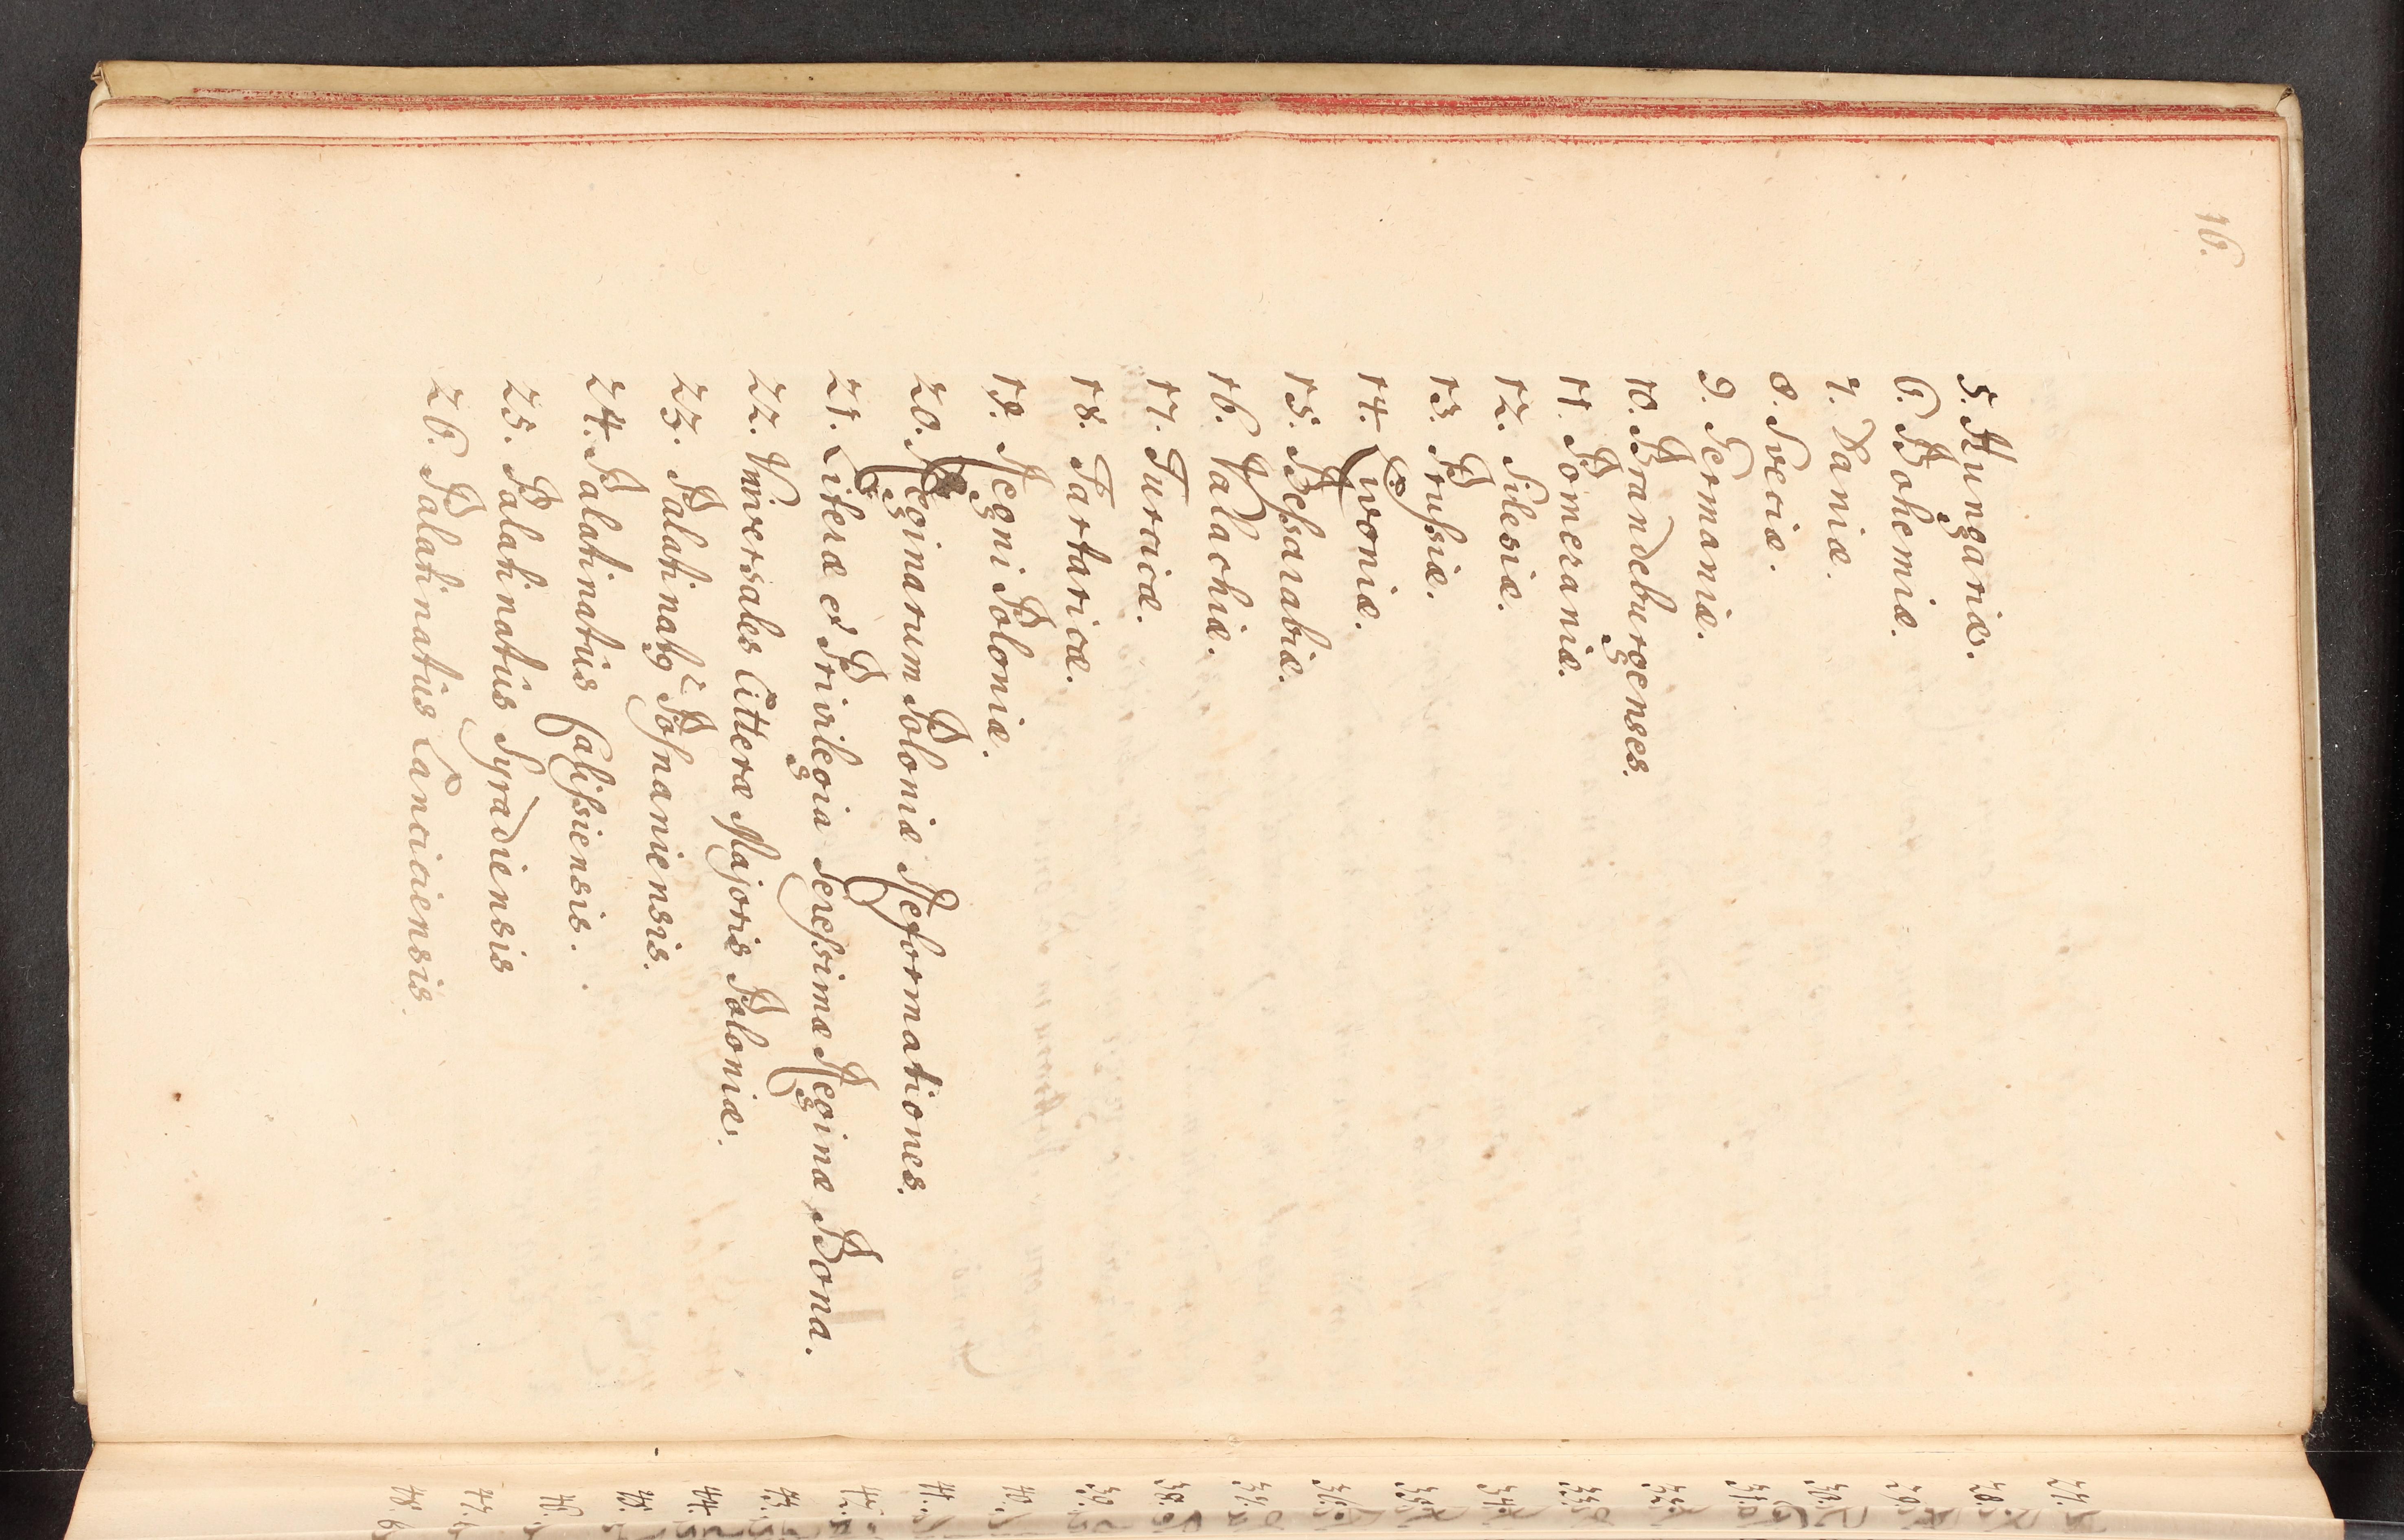 16.
5. Hungariæ.
6. Bohemiæ.
7. Daniæ.
8. Sveciæ.
9. Germaniæ.
10. Brandeburgenses.
11. Pomeraniæ.
12. Silesiæ.
13. Prussiæ.
14. Livoniæ.
15. Bessarabiæ.
16. Valachiæ.
17. Turcicæ.
18. Tartaricæ.
19. Regni Poloniæ.
20. Reginarum Poloniæ Reformationes.
21. Literæ et Privilegia Seressimæ Reginæ Bonæ.
22. Universales Litteræ Majoris Poloniæ.
23. Palatinatus Posnaniensis.
24. Palatinatus Calissiensis.
25. Palatinatus Syradiensis
26. Palatinatus Lanciciensis
27.
28.
29.
30.
31.
32.
33.
34.
35.
36.
37.
38.
39.
40.
41.
42.
43.
44.
45.
46.
47.
48.